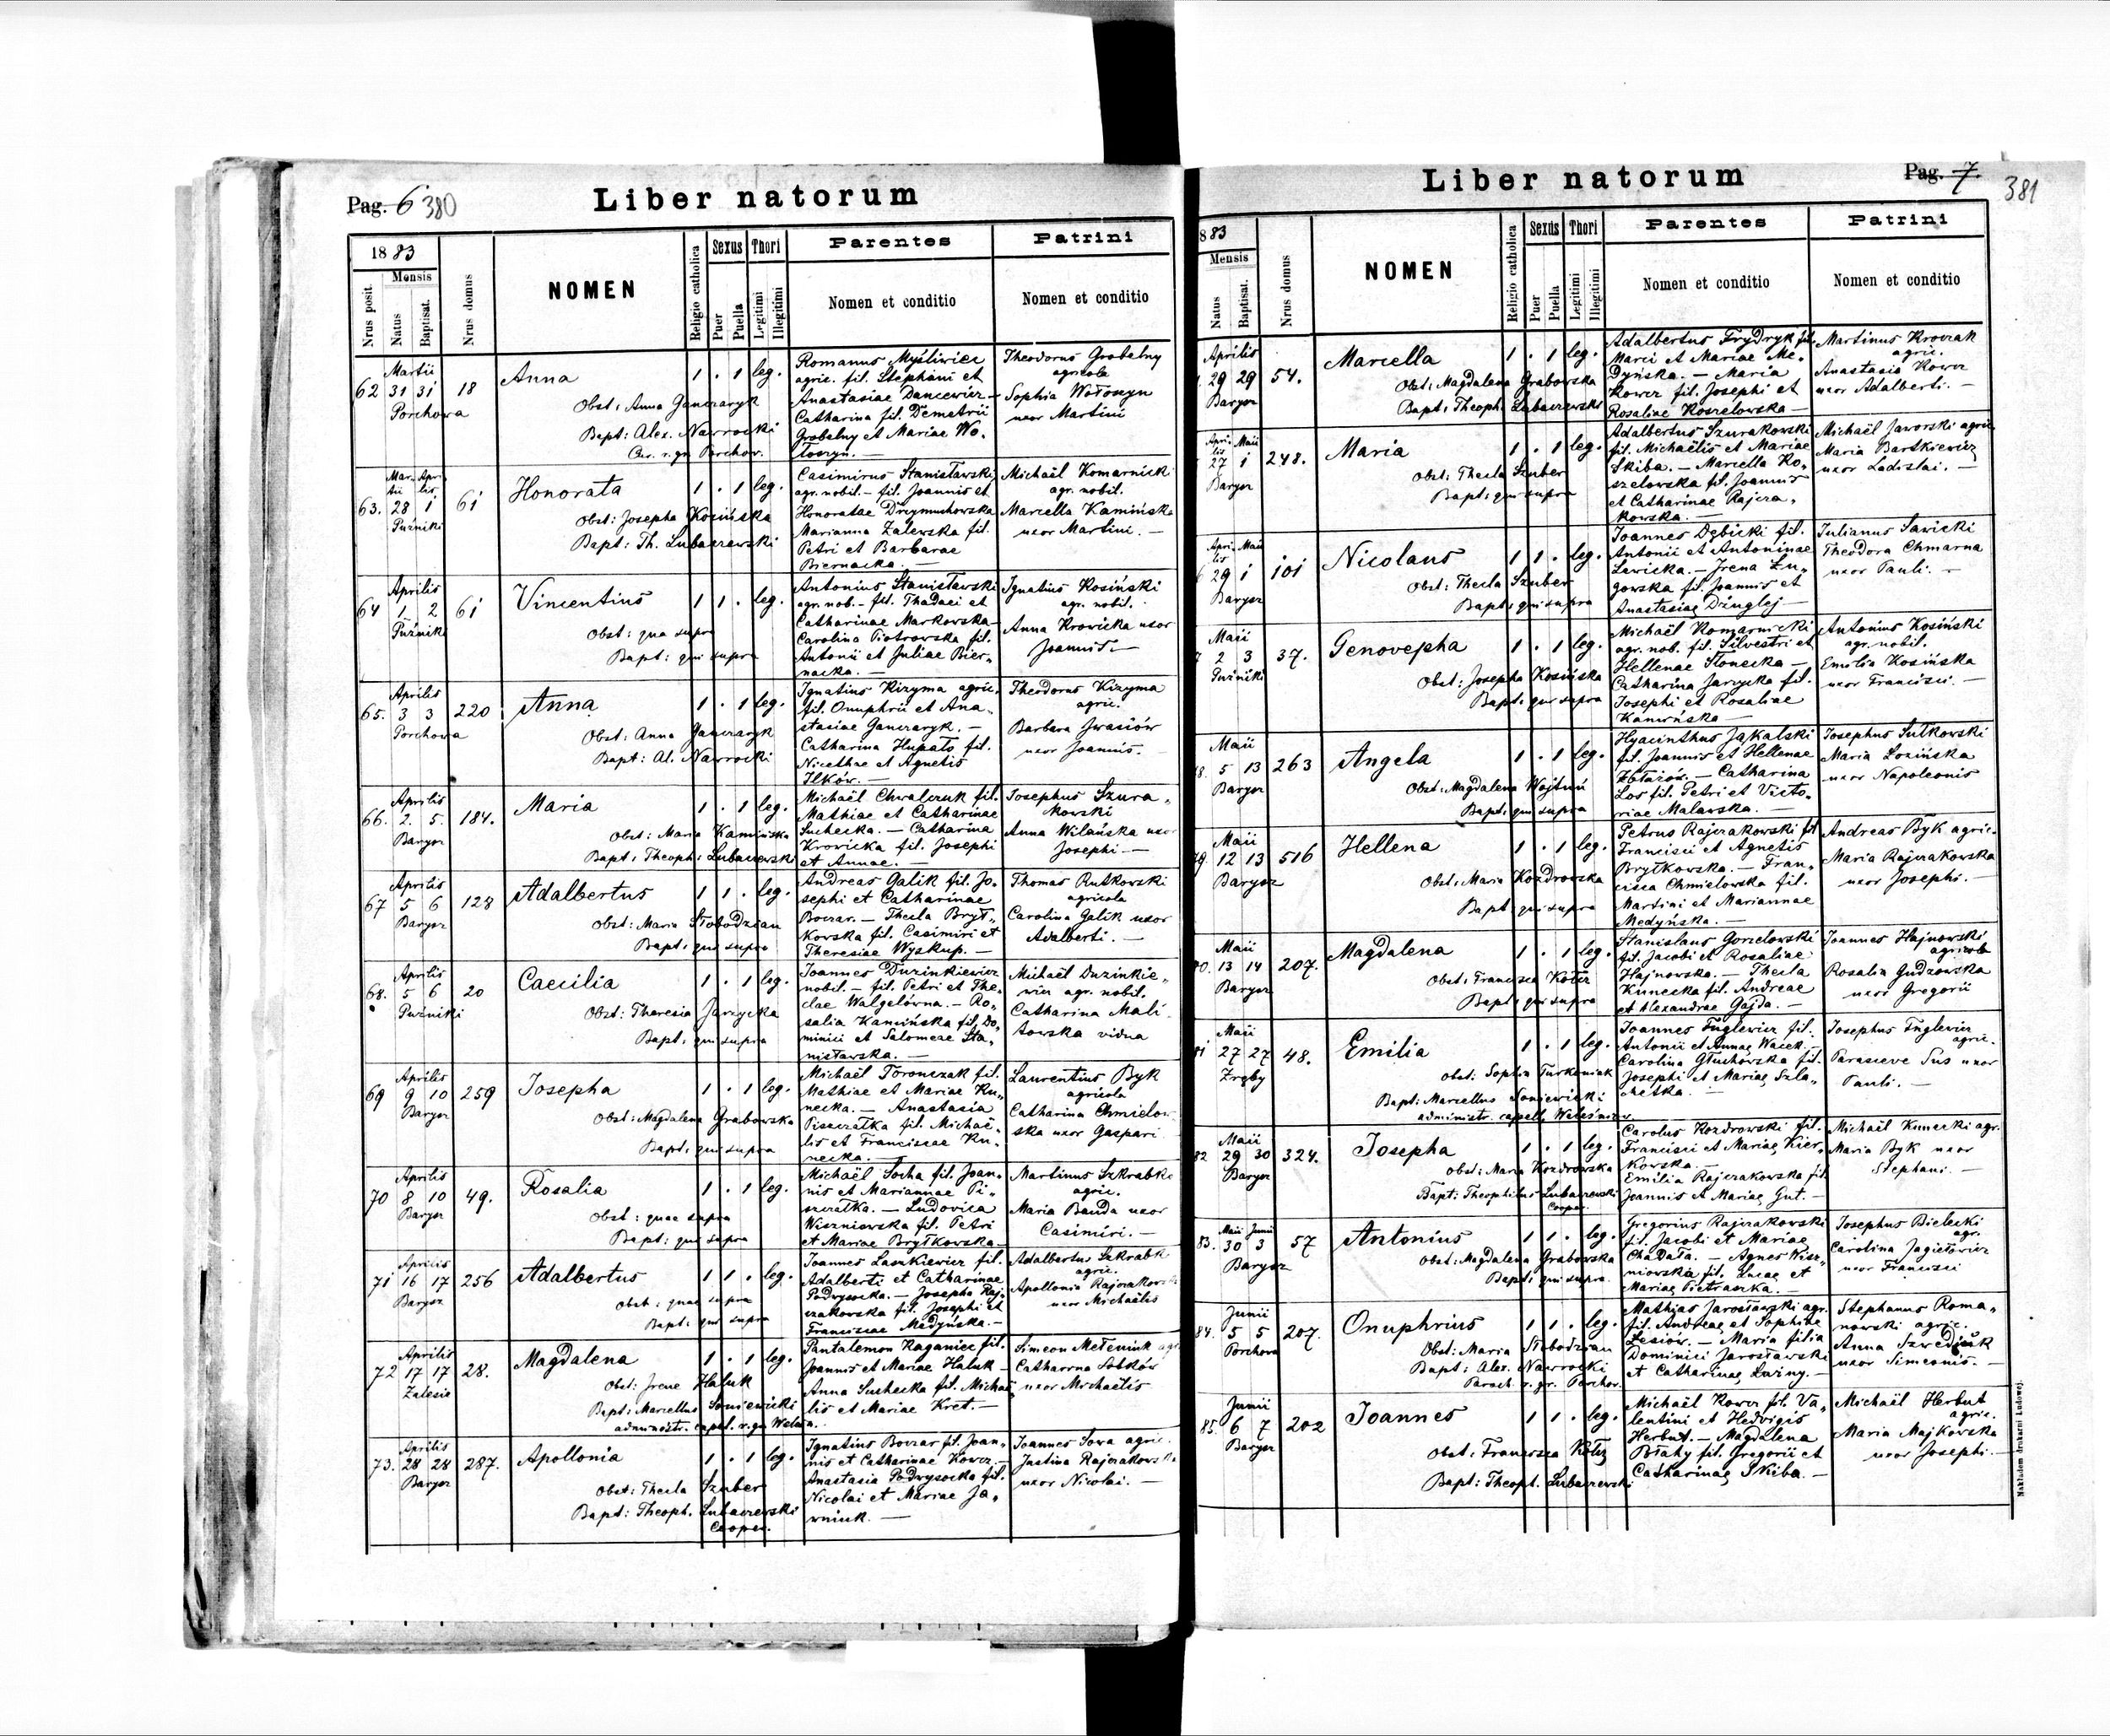 Pag. 6 380
Liber natorum
1883
Mensis
Nrus posit.
Natus
Baptisat.
Nrus domus
NOMEN
Religio catholica
Sexus
Puer
Puella
Thori
Legitimi
Illegitimi
Parentes
Nomen et conditio
Patrini
Nomen et conditio
62 Martii 31 31 Porchowa 18
Anna
Obst: Anna Ganczaryk
Bapt: Alex. Nawrocki
Cur. r. gr. Porchow.
1 . 1 leg.
Romanus Myśliwiec
agric. fil. Stephani et
Anastasiae Dancewicz –
Catharina fil. Demetrii
Grabelny et Mariae Wo-
łoszyn. —
Theodorus Grabelny
agricola
Sophia Wołoszyn
uxor Martini
63. Martii Aprilis 28 1 Puźniki 61
Honorata
Obst: Josepha Kosińska
Bapt: Th. Lubaczewski
1 . 1 leg.
Casimirus Stanisławski
agr. nobil. – fil. Joannis et
Honoratae Drzymuchowska
Marianna Zalewska fil.
Petri et Barbarae
Biernacka. —
Michaël Komarnicki
agr. nobil.
Marcella Kamińska
uxor Martini. —
64 Aprilis 1. 2 Puźniki 61
Vincentius
Obst: qua supra
Bapt: qui supra
1 1 . leg.
Antonius Stanisławski
agr. nob. – fil. Thadaei et
Catharinae Markowska –
Carolina Piotrowska fil.
Antonii et Juliae Bier-
nacka. —
Ignatius Kosiński
agr. nobil.
Anna Krowicka uxor
Joannis. —
65. Aprilis 3 3 Porchowa 220
Anna
Obst: Anna Ganczaryk
Bapt: Al. Nawrocki
1 . 1 leg.
Ignatius Kizyma agric.
fil. Onuphrii et Ana-
stasiae Ganczaryk. —
Catharina Hupało fil.
Nicethae et Agnetis
Ilków. —
Theodorus Kizyma
agric.
Barbara Iwasiów
uxor Joannis. —
66. Aprilis 2. 5. Barysz 184.
Maria
Obst: Maria Kamińska
Bapt: Theoph: Lubaczewski
1 . 1 leg.
Michaël Chwalczuk fil.
Mathiae et Catharinae
Suchecka. – Catharina
Krowicka fil. Josephi
et Annae. —
Josephus Szura-
kowski
Anna Wilańska uxor
Josephi —
67 Aprilis 5 6 Barysz 128
Adalbertus
Obst: Maria Słobodzian
Bapt: qui supra
1 1 . leg.
Andreas Galik fil. Jo-
sephi et Catharinae
Boczar. – Thecla Bryt-
kowska fil. Casimiri et
Theresiae Wyskup. —
Thomas Rutkowski
agricola
Carolina Galik uxor
Adalberti. —
68. Aprilis 5 6 Puźniki 20
Caecilia
Obst: Theresia Jarzycka
Bapt: qui supra
1 . 1 leg.
Joannes Duzinkiewicz
nobil. – fil. Petri et The-
clae Walgelówna. – Ro-
salia Kamińska fil. Do-
minici et Salomeae Sta-
nisławska. —
Michaël Duzinkie-
wicz agr. nobil.
Catharina Mali-
towska vidua
69 Aprilis 9 10 Barysz 259
Josepha
Obst: Magdalena Grabowska
Bapt: qui supra
1 . 1 leg.
Michaël Toronczak fil.
Mathiae et Mariae Ku-
necka. – Anastasia
Piszczatka fil. Michaë-
lis et Franciscae Ku-
necka. —
Laurentius Byk
agricola
Catharina Chmielow-
ska uxor Gaspari
70 Aprilis 8 10 Barysz 49.
Rosalia
Obst: quae supra
Bapt: qui supra
1 . 1 leg.
Michaël Socha fil. Joan-
nis et Mariannae Pi-
szczatka. – Ludovica
Wiszniowska fil. Petri
et Mariae Brytkowska —
Martinus Szkrabka
agric.
Maria Banda uxor
Casimiri. —
71 Aprilis 16 17 Barysz 256
Adalbertus
Obst: quae supra
Bapt: qui supra
1 1 . leg.
Joannes Laszkiewicz fil.
Adalberti et Catharinae
Podwysocka. – Josepha Raj-
czakowska fil. Josephi et
Franciscae Medyńska. —
Adalbertus Szkrabk
agric.
Apollonia Rajczakowska
uxor Michaëlis
72 Aprilis 17 17 Zalesie 28.
Magdalena
Obst: Irene Haluk
Bapt: Marcellus Soniewicki
administr. capel. r. gr. Welesn.
1 . 1 leg.
Pantalemon Kaganiec fil.
Joannis et Mariae Haluk –
Anna Suchecka fil. Michaë
lis et Mariae Kret. —
Simeon Mełeniuk agr
Catharina Sotków
uxor Michaëlis
73. Aprilis 28 28 Barysz 287.
Apollonia
Obst: Thecla Szuber
Bapt: Theoph. Lubaczewski
Cooper.
1 . 1 leg.
Ignatius Boczar fil. Joan-
nis et Catharinae Kowcz. –
Anastasia Podwysocka fil.
Nicolai et Mariae Ja-
wniuk. —
Joannes Sowa agric.
Justina Rajczakowska
uxor Nicolai. —
Liber natorum
Pag. 7. 381
883
Mensis
Natus
Baptisat.
Nrus domus
NOMEN
Religio catholica
Sexus
Puer
Puella
Thori
Legitimi
Illegitimi
Parentes
Nomen et conditio
Patrini
Nomen et conditio
Aprilis 29 29 Barysz 54.
Marcella
Obst: Magdalena Grabowska
Bapt: Theoph: Lubaczewski
1 . 1 leg.
Adalbertus Frydryk fil.
Marci et Mariae Me-
dyńska. – Maria
Kowcz fil. Josephi et
Rosaliae Koszelowska —
Martinus Krowzak
agric.
Anastasia Kowcz
uxor Adalberti. —
Aprilis Maii 27 1 Barysz 248.
Maria
Obst: Thecla Szuber
Bapt: qui supra
1 . 1 leg.
Adalbertus Szurakowski
fil. Michaëlis et Mariae
Skiba. – Marcella Ko-
szelowska fil. Joannis
et Catharinae Rajcza-
kowska. —
Michaël Jaworski agric.
Maria Bartkiewicz
uxor Ladislai. —
Aprilis Maii 29 1 Barysz 101
Nicolaus
Obst: Thecla Szuber
Bapt: qui supra
1 1 . leg.
Joannes Dębicki fil.
Antonii et Antoninae
Lewicka. – Irena Zu-
gowska fil. Joannis et
Anastasiae Drzuglej —
Julianus Sawicki
Theodora Chmarna
uxor Pauli. –
7 Maii 2 3 Puźniki 37.
Genovepha
Obst: Josepha Kosińska
Bapt: qui supra
1 . 1 leg.
Michaël Komarnicki
agr. nob. fil. Silvestri et
Hellenae Słonecka —
Catharina Jarzycka fil.
Josephi et Rosaliae
Kamińska —
Antonius Kosiński
agr. nobil.
Emilia Kosińska
uxor Francisci. —
8. Maii 5 13 Barysz 263
Angela
Obst: Magdalena Wojtuń
Bapt: qui supra
1 . 1 leg.
Hyacinthus Jakalski
fil. Joannis et Hellenae
Zołazów. – Catharina
Los fil. Petri et Victo-
riae Malawska. —
Josephus Sutkowski
Maria Łozińska
uxor Napoleonis
79. Maii 12 13 Barysz 516
Hellena
Obst: Maria Kozdrowska
Bapt: qui supra
1 . 1 leg.
Petrus Rajczakowski fil
Francisci et Agnetis
Brytkowska. – Fran-
cisca Chmielowska fil.
Martini et Mariannae
Medyńska. —
Andreas Byk agric.
Maria Rajczakowska
uxor Josephi. —
0. Maii 13 14 Barysz 207.
Magdalena
Obst: Francisca Kotez
Bapt: qui supra
1 . 1 leg.
Stanislaus Gorzelowski
fil. Jacobi et Rosaliae
Hajnowska. – Thecla
Kunecka fil. Andreae
et Alexandrae Gajda. —
Joannes Hajnowski
agricola
Rosalia Gudzowska
uxor Gregorii
81 Maii 27 27 Zręby 48.
Emilia
Obst: Sophia Turkeniak
Bapt: Marcellus Soniewicki
administr. capell. Weleśniow.
1 . 1 leg.
Joannes Fuglewicz fil.
Antonii et Annae Wacek. –
Carolina Głuchowska fil.
Josephi et Mariae Szla-
chetka. —
Josephus Fuglewicz
agric.
Parasceve Sus uxor
Pauli. —
82 Maii 29 30 Barysz 324.
Josepha
Obst: Maria Kozdrowska
Bapt: Theophilus Lubaczewski
Cooper.
1 . 1 leg.
Carolus Kozdrowski fil.
Francisci et Mariae Kier-
kowska. —
Emilia Rajczakowska fil.
Joannis et Mariae Gut. —
Michaël Kunecki agr.
Maria Byk uxor
Stephani. —
83. Maii Junii 30 3 Barysz 57
Antonius
Obst: Magdalena Grabowska
Bapt: qui supra.
1 1 . leg.
Gregorius Rajczakowski
fil. Jacobi et Mariae
Chadała. – Agnes Wisz-
niowska fil. Lucae et
Mariae Pietraszka. —
Josephus Bielecki
agr.
Carolina Jagiełowicz
uxor Francisci
84. Junii 5 5 Porchowa 207.
Onuphrius
Obst: Maria Słobodzian
Bapt: Alex. Nawrocki
Paroch. r. gr. Porchow.
1 1 . leg.
Mathias Jarosławski agr.
fil. Andreae et Sophiae
Lesiów. – Maria filia
Dominici Jarosławski
et Catharinae Luźny. —
Stephanus Roma-
nowski agric.
Anna Szwedjuk
uxor Simeonis. —
85. Junii 6 7 Barysz 202
Joannes
Obst: Francisca Kotez
Bapt: Theopt. Lubaczewski
1 1 . leg.
Michaël Kowcz fil. Va-
lentini et Hedvigis
Herbut. – Magdalena
Błahy fil. Gregorii et
Catharinae Skiba. —
Michaël Herbut
agric.
Maria Majkowska
uxor Josephi. —
Nakładem drukarni Ludowej.